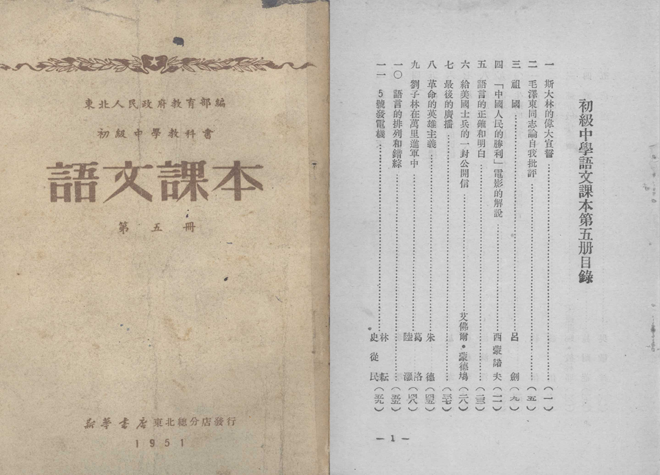 東北人民政府教育部編
初級中學教科書
語文課本
第五冊
新華書店東北總分店發行
1951
初級中學語文課本第五冊目錄
一 斯大林的偉大宣誓……(一)
二 毛澤東同志論自我批評……(五)
三 祖國……呂劍(九)
四 「中國人民的勝利」電影的解說……西蒙諾夫(一一)
五 語言的正確和明白……
六 給美國士兵的一封公開信……艾佛爾•蒙德塢(二八)
七 最後的廣播……
八 革命的英雄主義……朱德
九 劉子林在萬里進軍中……葛洛 陸灝
一〇 語言的排列和錯綜……
一一 5號發電機……林耘 史從民
— 1 —